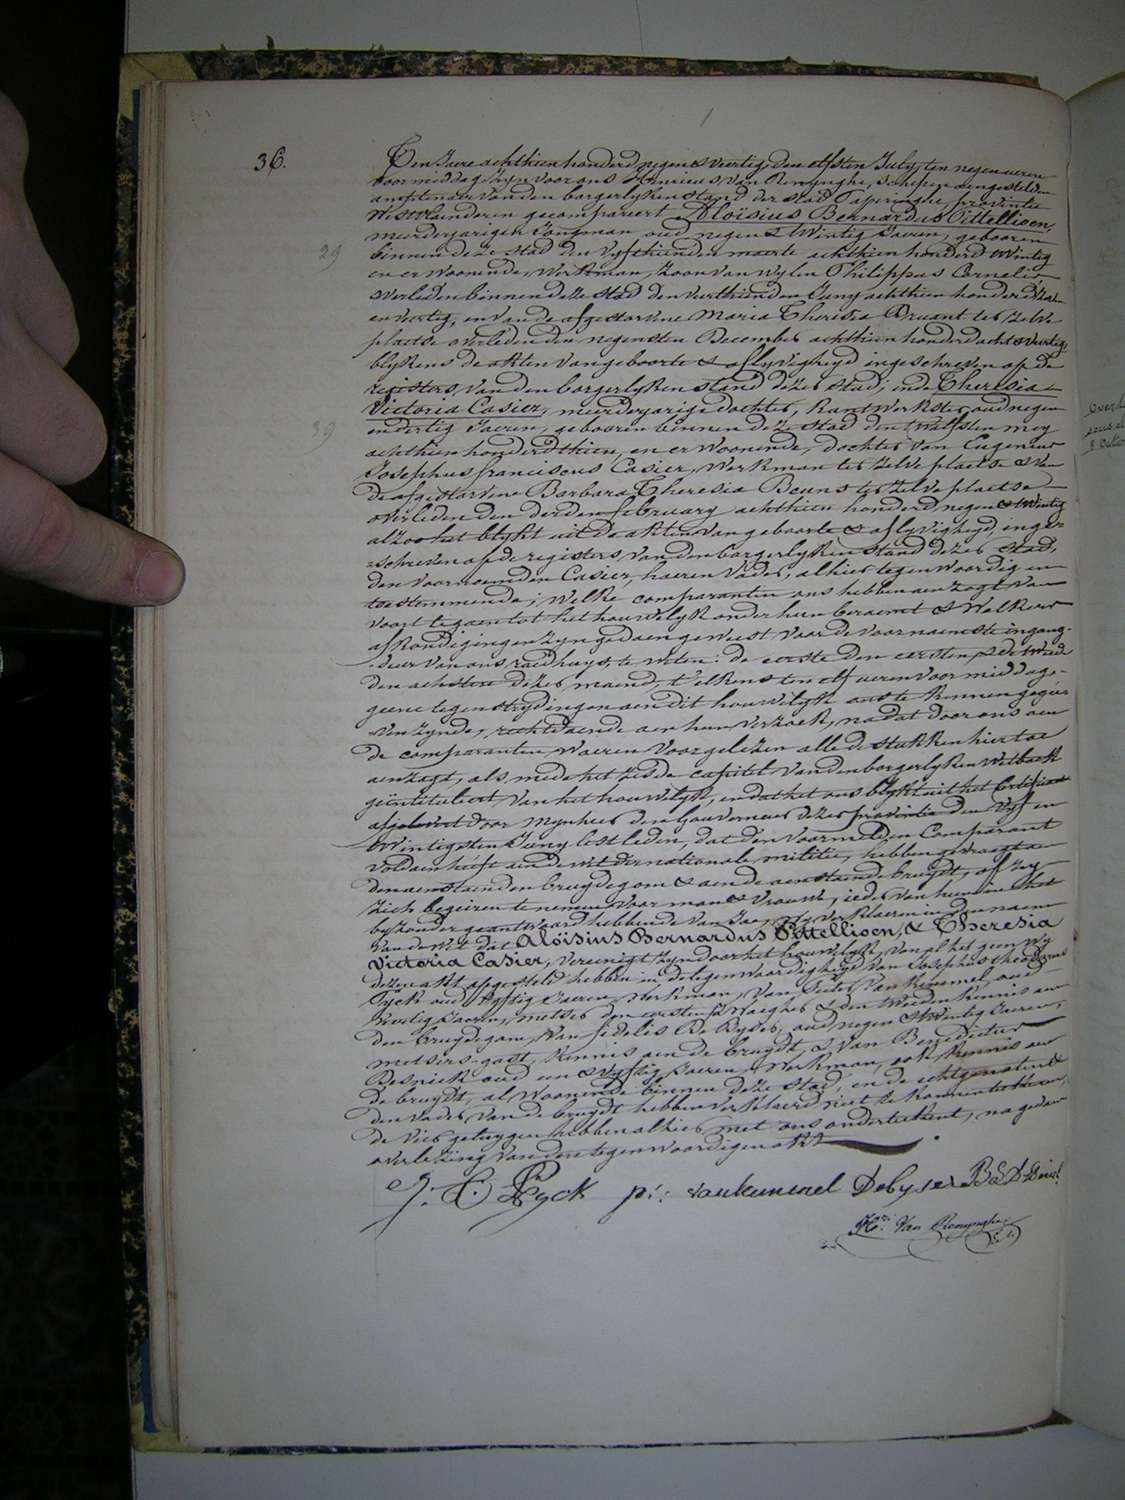 36.
Den Jaere achthien honderd negen & veertig, den elfsten July, ten negen ueren
voormiddag, Zyn voor ons Henricus Van Renynghe, schepen aengestelden
amptenaer van den borgerlyken stand der stad Poperinghe, provintie
Westvlaenderen gecompareert Aloïsius Bernardus Pittellioen,
meerderjarigen Jongman oud negen & twintig Jaeren, gebooren
29
binnen deze stad den Vyfthienden maerte achthien honderd twintig
en er Woonende, Werkman, Zoon van wylen Philippus Cornelis
overleden binnen deze stad den veerthienden Juny achthien honderd
en veertig, en van de afgestorvene Maria Theresia Bruant ter Zelve
plaetse overleden den negensten December achthien honderd acht & veertig,
blykens de akten van geboorte & aflyvigheyd ingeschreven op de
registers van den borgerlyken stand dezer stad; ende Theresia
Victoria Casier, meerderjarige dochter, kantwerkster, oud negen
39
en dertig Jaeren, gebooren binnen deze stad den twelfsten mey
achthien honderd thien, en er woonende, dochter van Eugenius
Josephus franciscus Casier, Werkman ter Zelve plaetse & van
de afgestorvene Barbara Theresia Beuns ter Zelve plaetse
overleden den derden february achthien honderd negen & twintig
alzoo het blykt uit de akten van geboorte & aflyvigheyd, inge-
schreven op de registers van den borgerlyken stand dezer stad,
den voornoemden Casier, haeren Vader, alhier tegenwoordig en
toestemmende; welke comparanten ons hebben aenzogt van
voort te gaen tot het houwelyk onder hun beraemt & Welkers
afkondigingen zyn gedaen geweest voor de voornaemste ingang-
deur van ons raedhuys, te weten: de eerste den eersten & de tweede
den achsten dezer maend, t'elkens ten elf ueren voormiddag,
geene tegenstrydingen aen dit houwelyk ons te kennen gegeven
zynde, rechtdoende aen hun verzoek, nadat door ons aen
de comparanten waeren voorgelezen alle de stukken hiertoe
aenzogt, als mede het zesde capitel van den borgerlyken Wetboek
geïntituleert, van het houwelyk, en dat het ons blykt uit het Certificaet
afgelevert door mynheer den Gouverneur dezer provintie den Vyf en
twintigsten Juny lestleden, dat den voormelden Comparant
voldaen heeft aen de wet der nationale militie, hebben gevraegt aen
den aenstaenden bruydegom & aen de aenstaende bruydt, of zy
zich begeeren te nemen voor man & vrouwe, ieder van hun in het
byzonder geantwoord hebbende van Jae, wy verklaeren in den naem
van de wet dat Aloïsius Bernardus Pittellioen, & Theresia
Victoria Casier, vereenigt zyn door het houwelyk, van al het geen wy
dezen akt opgesteld hebben in de tegenwoordigheyd van Josephus
Pyck oud Vyftig Jaeren, Werkman, van Pieter Van Kemmel, oud
Veertig Jaeren, metser, den eersten & den tweeden kennis aen
den bruydegom, van fidelis De Byser, oud negen & twintig Jaeren,
metsers-gast, kennis aen de bruydt, & van Benedictus
Desnick oud een & vyftig Jaeren, Werkman, ook kennis aen
de bruydt, al woonende binnen deze stad, en de echtgenoten &
den vader van de bruydt hebben verklaerd niet te konnen teekenen,
de vier getuygen hebben alhier met ons onderteekent, na gedaene
overlezing van den tegenwoordigen akt
J. T. Pyck pr: vankemmel Debyser B
Hri Van Renynghe